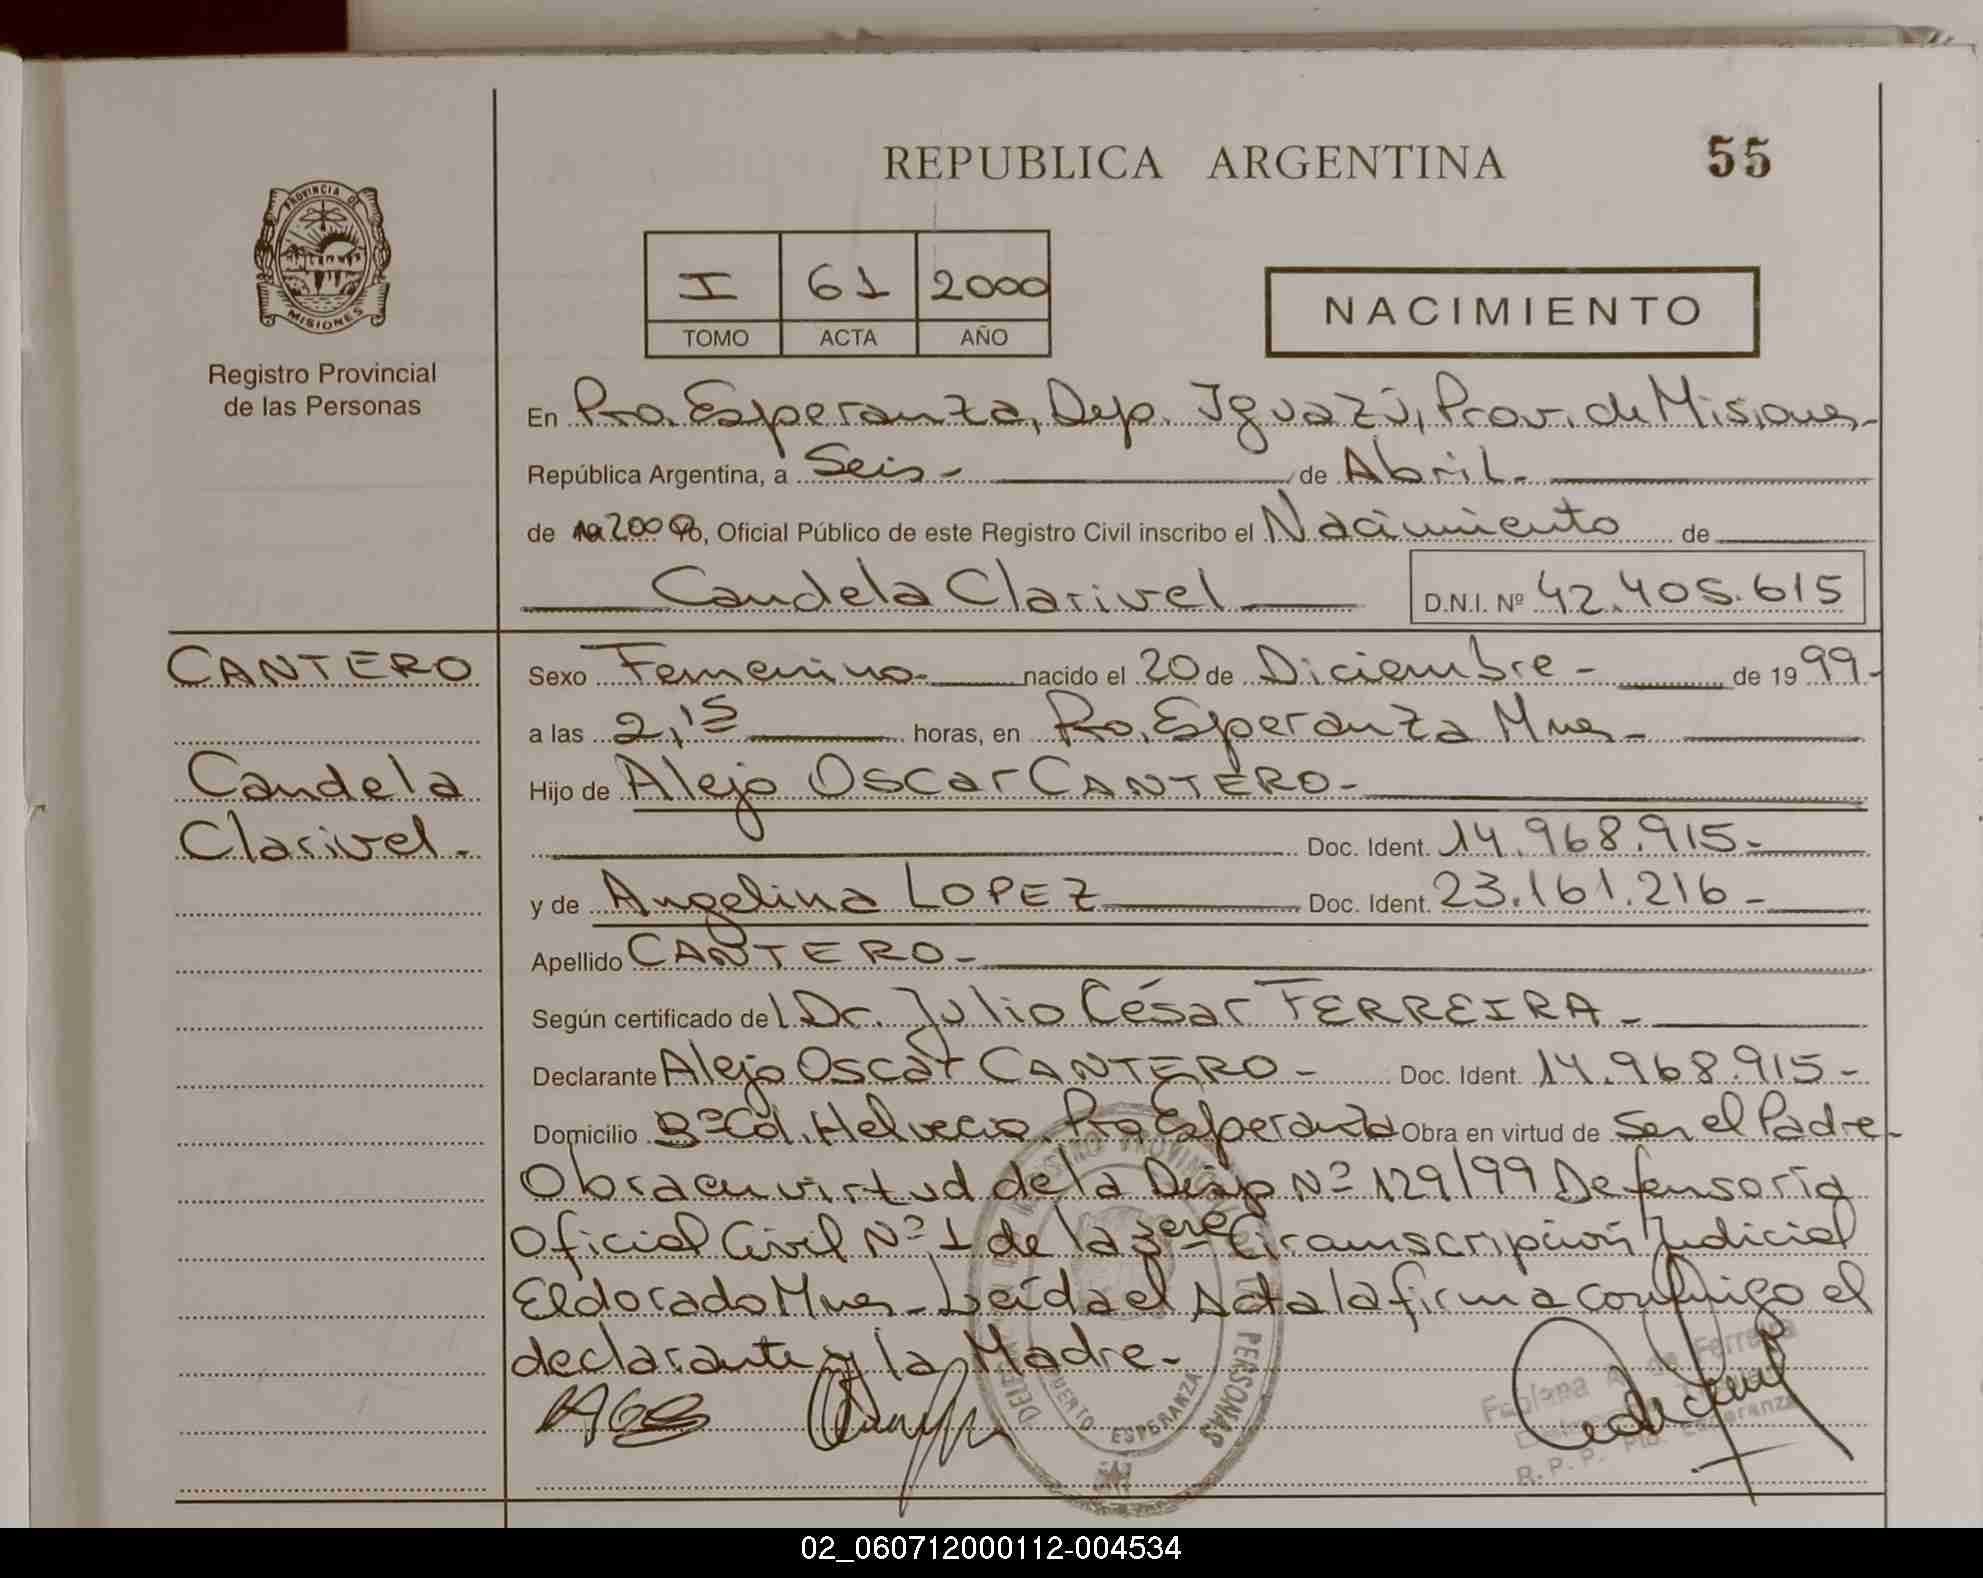 REPUBLICA ARGENTINA
55
PROVINCIA DE
MISIONES
Registro Provincial
de las Personas
I 61 2000
TOMO ACTA AÑO
NACIMIENTO
En Pto. Esperanza, Dep. Iguazú, Prov. de Misiones.-
República Argentina, a Seis.- de Abril.-
de 2000 Yo, Oficial Público de este Registro Civil inscribo el Nacimiento de
Candela Clarivel
D.N.I. Nº 42.405.615
CANTERO
Candela
Clarivel.-
Sexo Femenino.- nacido el 20 de Diciembre - de 1999.-
a las 2,15 horas, en Pto. Esperanza Mnes-
Hijo de Alejo Oscar CANTERO-
Doc. Ident. 14.968.915.-
y de Angelina LOPEZ Doc. Ident. 23.161.216-
Apellido CANTERO-
Según certificado del Dr. Julio César FERREIRA-
Declarante Alejo Oscar CANTERO- Doc. Ident. 14.968.915-
Domicilio Bº Cd. Helvecia Pto Esperanza Obra en virtud de Ser el Padre-
Obra en virtud de la Disp Nº 129/99 Defensoría
Oficial Civil Nº 1 de la 3era Circunscripción Judicial
Eldorado Mnes- Leída el Acta la firma conmigo el
declarante y la Madre-
REGISTRO PROVINCIAL DE LAS PERSONAS
PUERTO ESPERANZA
de Ferreira
R.P.P. Pto. Esperanza
02_060712000112-004534